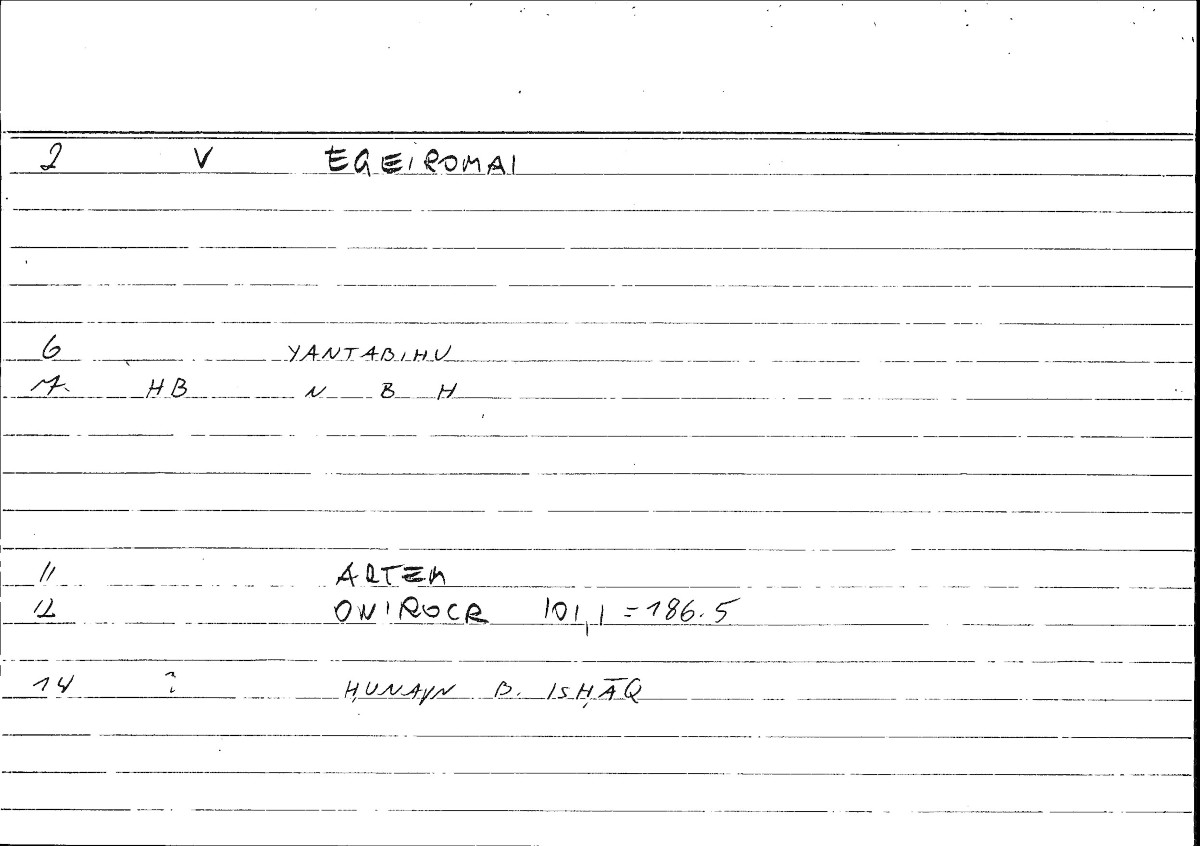 2 V EGEIROMAI
6 YANTABIHU
7 HB N B H
11 ARTEM
12 ONIROCR 101,1 = 186.5
14 ? ḤUNAYN B. ISḤĀQ